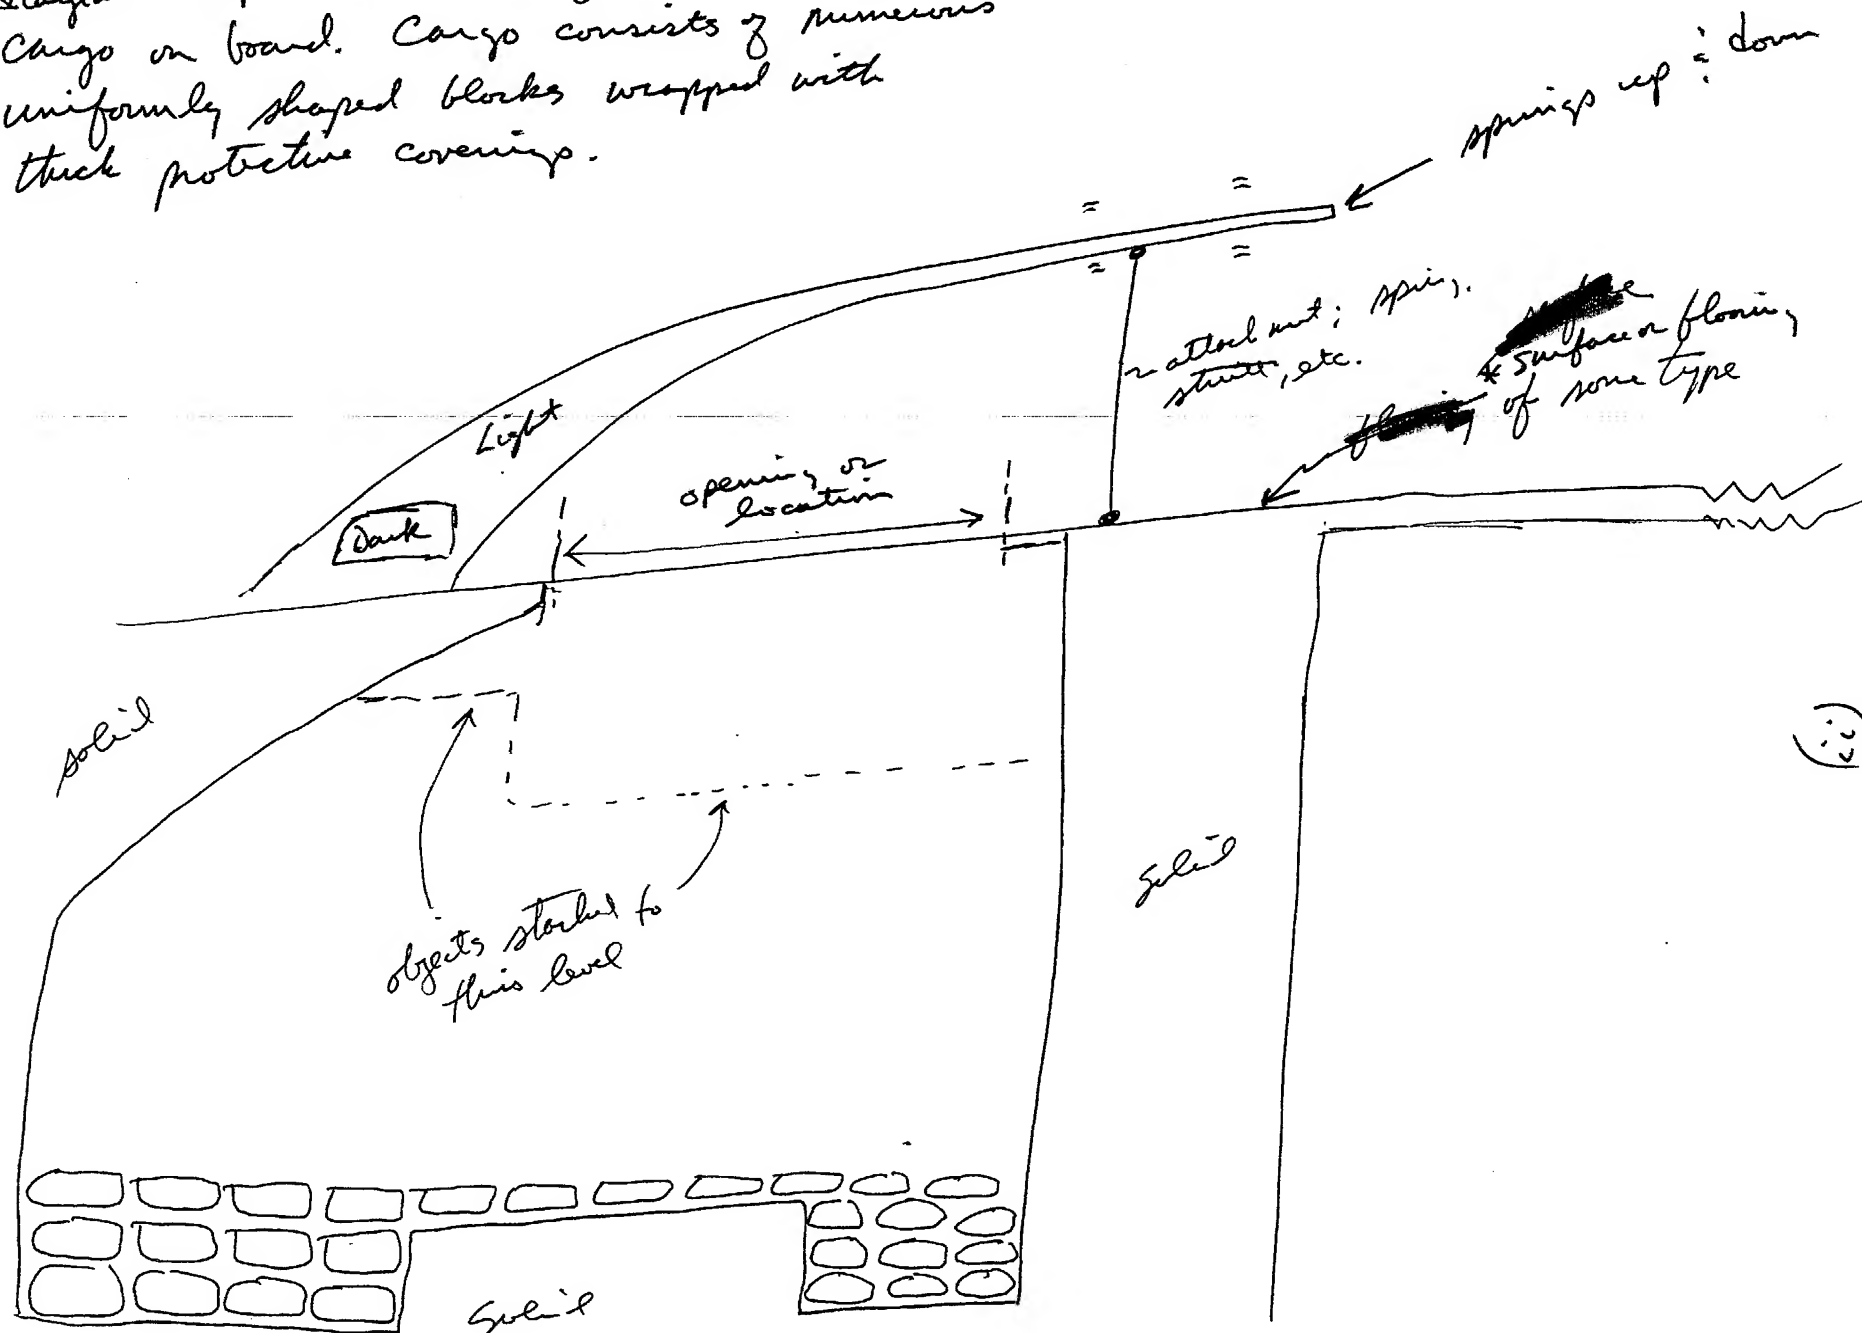 Cargo on board. Cargo consists of numerous
uniformly shaped blocks wrapped with
thick protective coverings.
springs up & down
~ attachment; spring,
strut, etc.
* surface or flooring
of some type
Light
opening or
location
Dark
solid
objects stacked to
this level
Solid
Solid